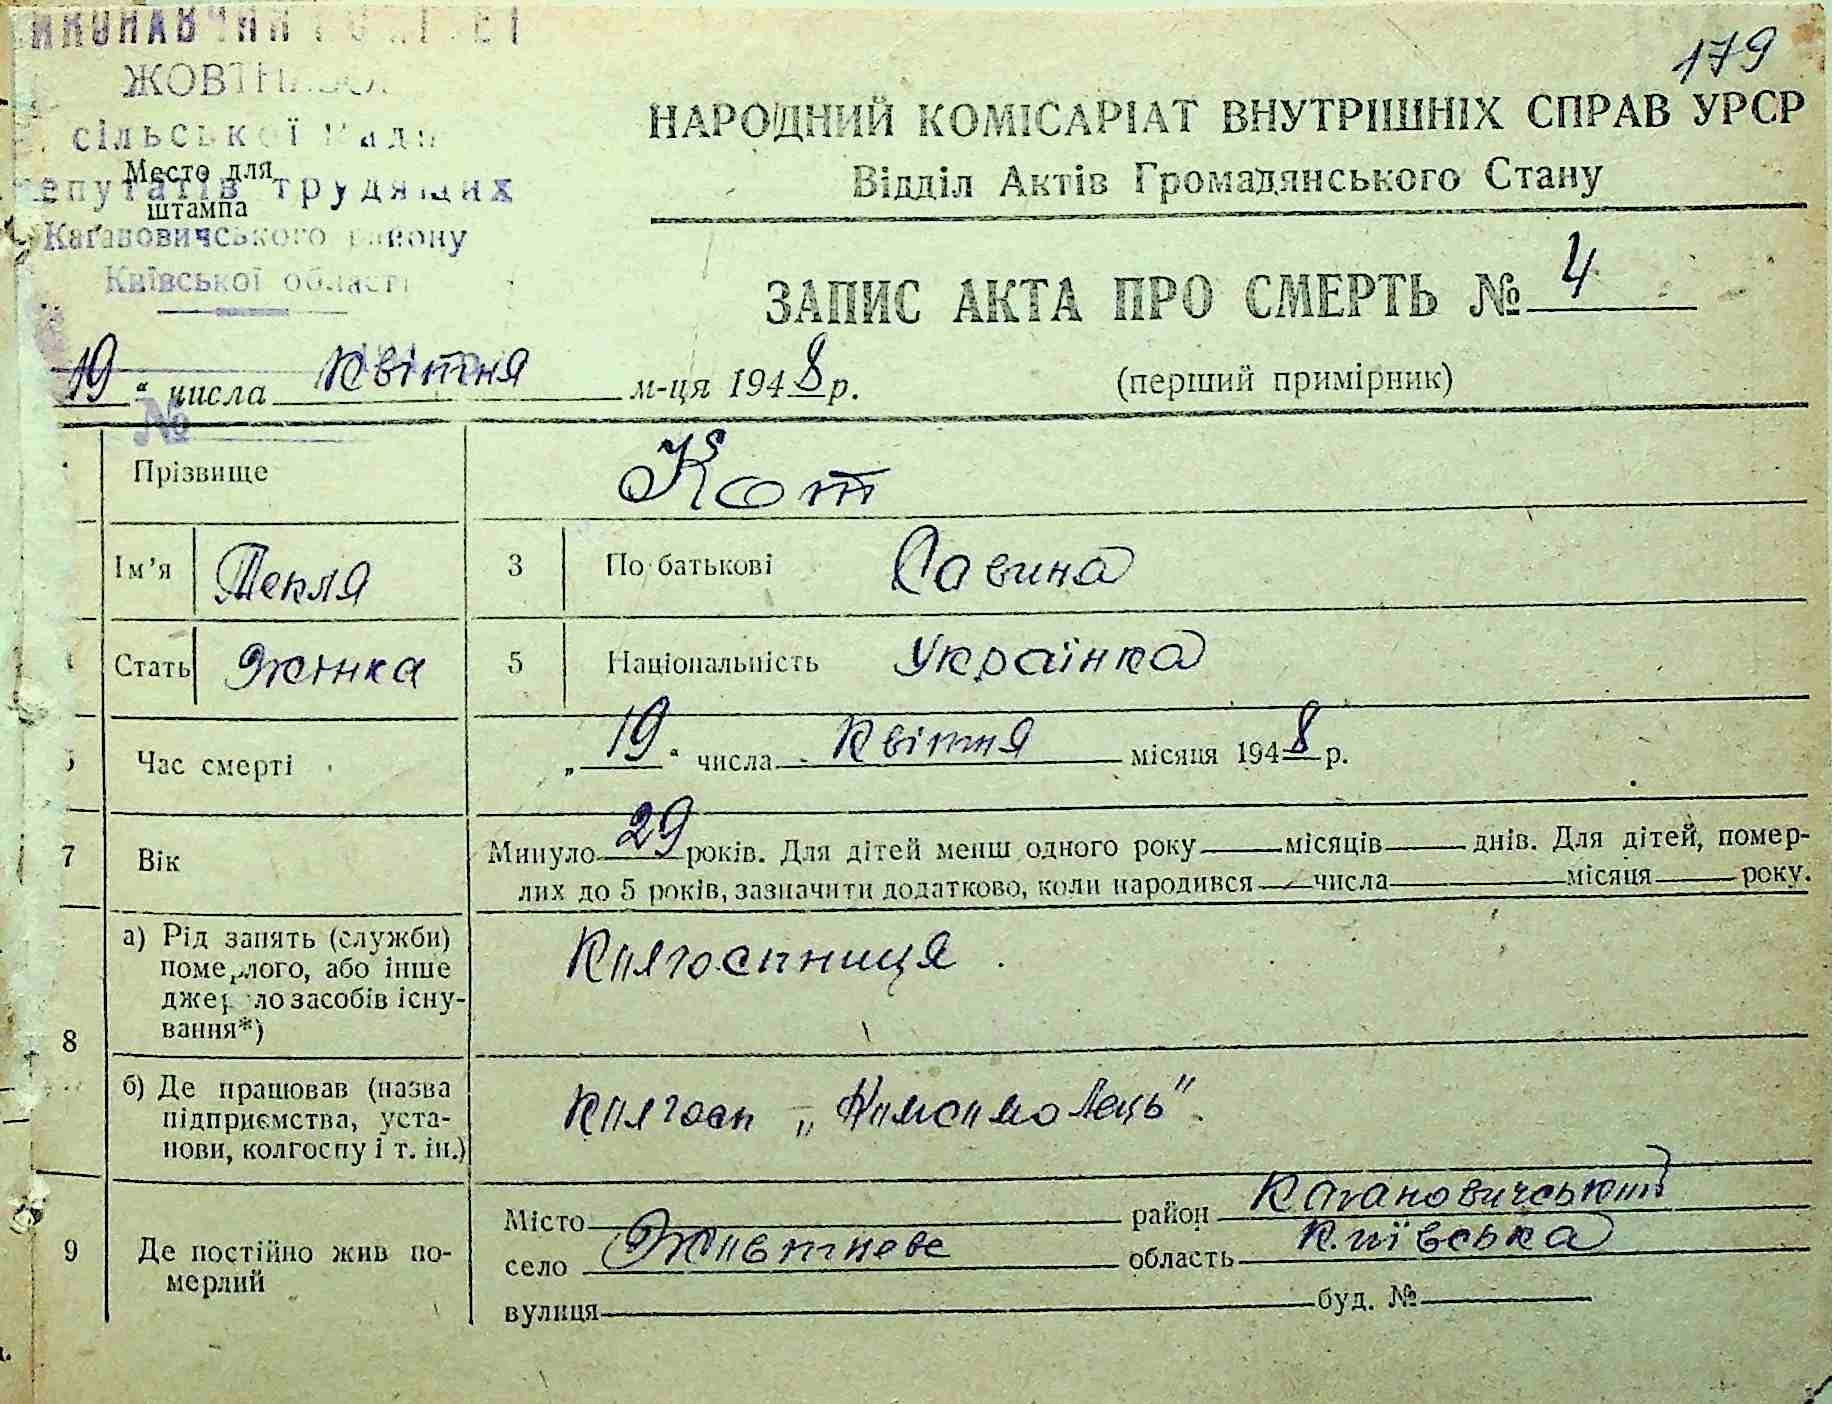 179
сільської
депутатів трудящих
Кагановичського району
Київської області
Место для
штампа
НАРОДНИЙ КОМІСАРІАТ ВНУТРІШНІХ СПРАВ УРСР
Відділ Актів Громадянського Стану
ЗАПИС АКТА ПРО СМЕРТЬ № 4
19 " числа Квітня м-ця 1948 р.
(перший примірник)
№
Прізвище Кот
Ім'я Текля 3 По батькові Савина
Стать Жінка 5 Національність Українка
Час смерті „ 19 " числа Квітня місяця 1948 р.
7 Вік Минуло 29 років. Для дітей менш одного року місяців днів. Для дітей, помер-
лих до 5 років, зазначити додатково, коли народився числа місяця року.
8 а) Рід занять (служби)
померлого, або інше
джерело засобів існу-
вання*)
Колгоспниця
б) Де працював (назва
підприємства, уста-
нови, колгоспу і т. ін.)
Колгосп „Комсомолець"
9 Де постійно жив по-
мерлий
Місто район Кагановичський
село Жовтневе область Київська
вулиця буд. №